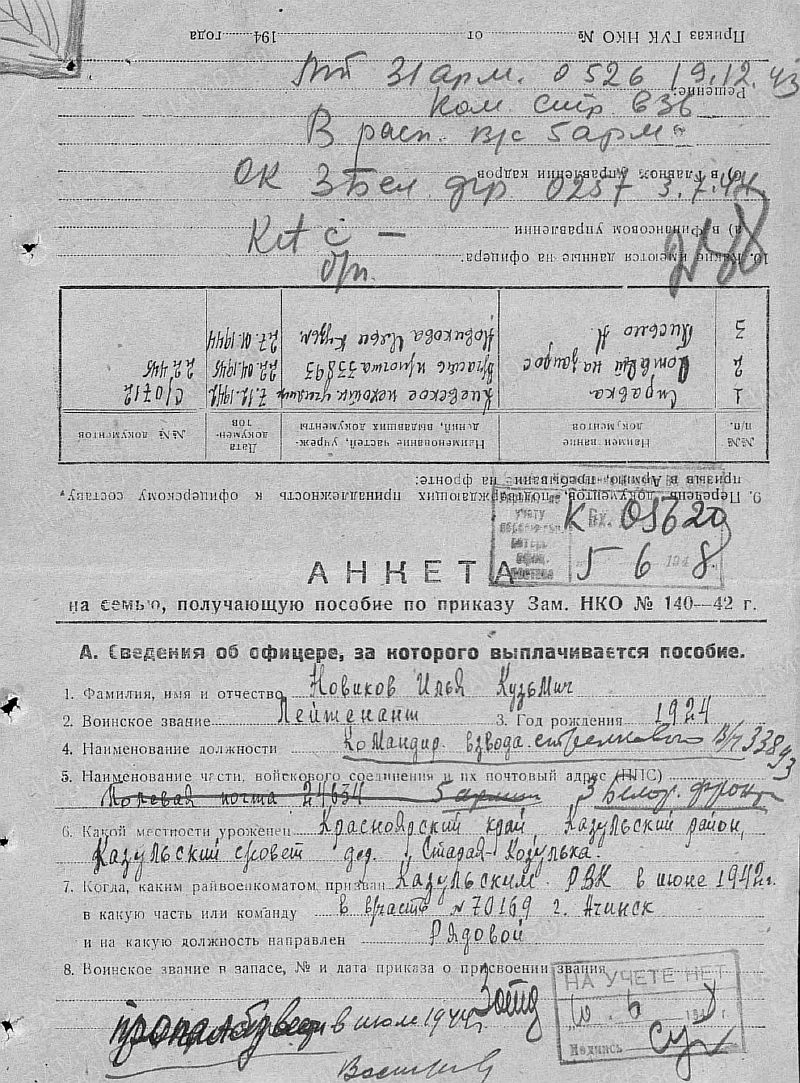 Приказ ГУК НКО № от 194 года
31 арм. 0526 19.12.43
Решение:
Ком. стр взв
В расп. в/с 5 арм
б) в Главном управлении кадров
ОК 3 Бел. фр 0257 3.7.44
а) в Финансовом управлении
10. Какие имеются данные на офицера:
б/п.
3 Письмо Новикова Ильи Кузьм. 27.01.1944
2 на запрос в/часть п/почта 33893 22.04.1945 22445
1 Справка Киевское пехотн. училище 7.12.1942 с/0712
№№ п/п. Наименование документов Наименование частей, учреж- Дата докумен- тов №№ документов
дений, выдавших документы
призыв в Армию, пребывание на фронте:
9. Перечень документов, подтверждающих принадлежность к офицерскому составу,
учету
Вх. 05620
5 6 1948
АНКЕТА
на семью, получающую пособие по приказу Зам. НКО № 140—42 г.
А. Сведения об офицере, за которого выплачивается пособие.
1. Фамилия, имя и отчество Новиков Илья Кузьмич
2. Воинское звание Лейтенант 3. Год рождения 1924
4. Наименование должности Командир взвода стрелкового В/ч 33893
5. Наименование части, войскового соединения и их почтовый адрес (ППС)
Полевая почта 24634 5 армии 3 Белор. фронт
6. Какой местности уроженец Красноярский край, Казульский район,
Казульский с/совет дер. Старая-Козулька.
7. Когда, каким райвоенкоматом призван Казульским РВК в июне 1942 г.
в какую часть или команду в в/часть № 70169 г. Ачинск
и на какую должность направлен Рядовой
8. Воинское звание в запасе, № и дата приказа о присвоении звания
НА УЧЕТЕ НЕТ
10. 6 194 г.
Подпись
пропал б/вести в июле 1944 г.